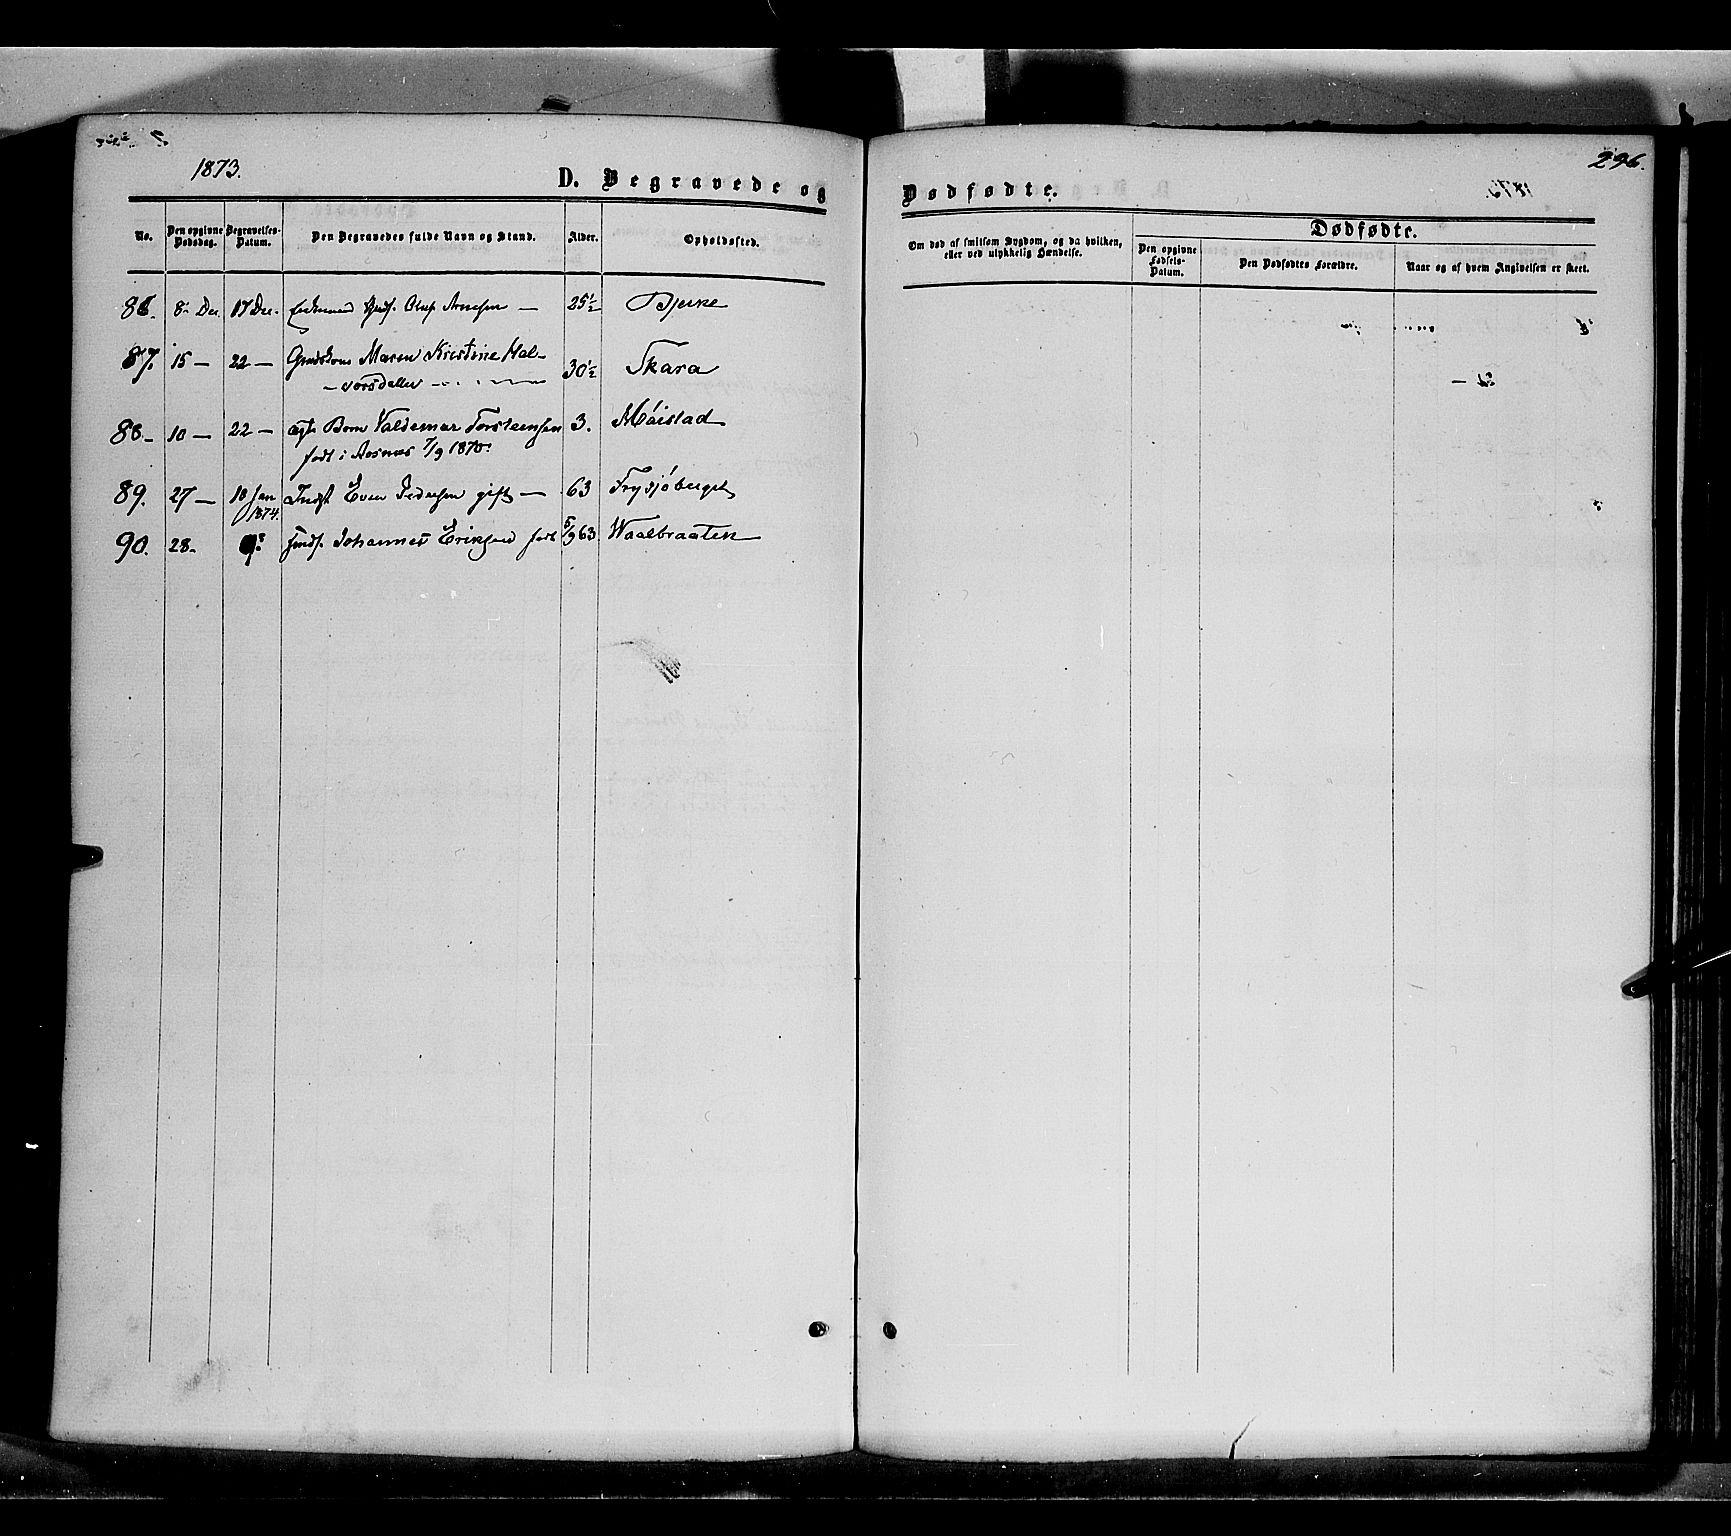 1873.
296.
D. Begravede og Dødfødte.
No. Den opgivne Dødsdag. Begravelses-Datum. Den Begravedes fulde Navn og Stand. Alder. Opholdssted. Om død af smitsom Sygdom, og da hvilken, eller ved ulykkelig Hændelse. Dødfødte.
Den opgivne Fødsels-Datum. Den Dødfødtes Forældre. Naar og af hvem Angivelsen er skeet.
86. 8- Dec 17 Dec. Olaf Arnesen — 25½ Bjerke
87. 15 — 22 — Maren Kristine Hal-
vorsdatter 30½ Skara
88- 10 — 22 — Barn Valdemar Torstensen 3. Möistad
født i Aasnes 7/9 1870.
89. 27 — 10 Jan Indst Even Pedersen gift — 63 Frysjöberget
1874.
90. 28- Johannes Eriksen født 5/9 63 Waalbraaten